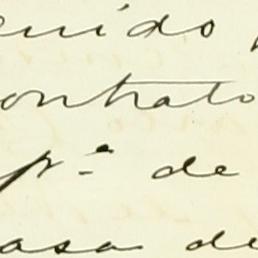 enido
contrato
pª de
casa de